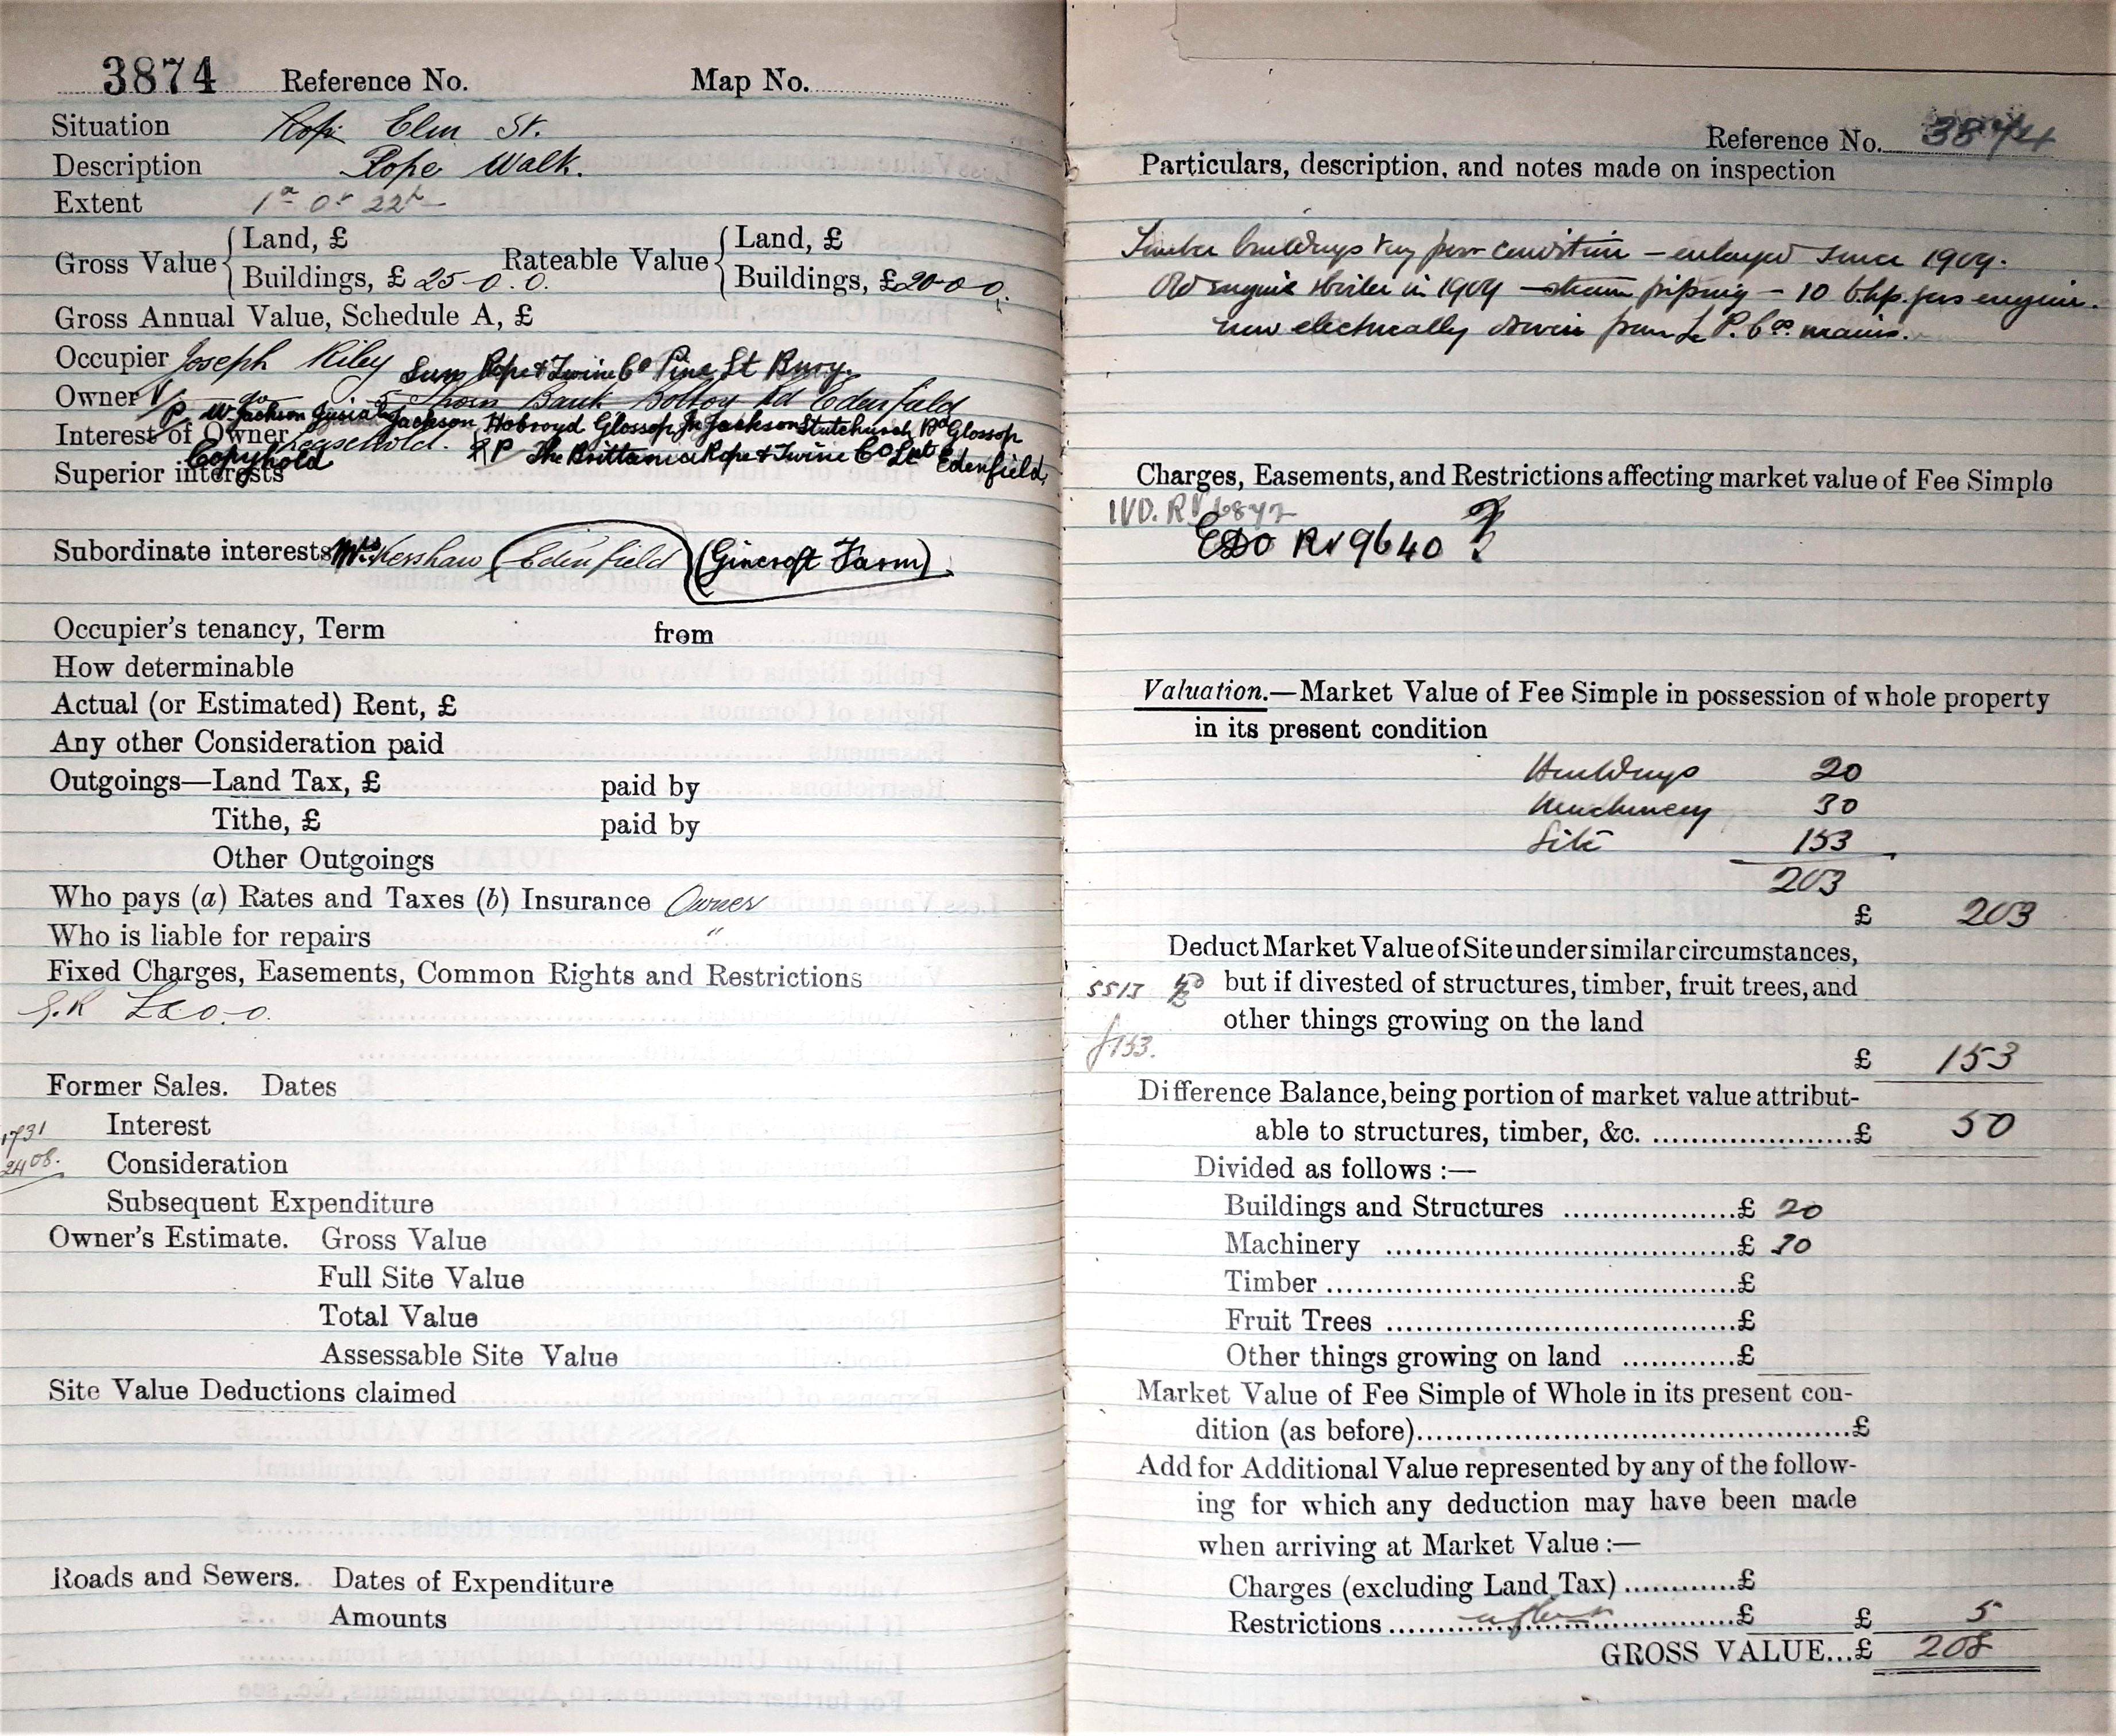 3874 Reference No. Map No.
Situation Rope Elm St.
Description Rope Walk.
Extent 1a 0r 22p
Gross Value { Land, £ Rateable Value { Land, £
Buildings, £ 25-0.0. Buildings, £ 20-0-0.
Gross Annual Value, Schedule A, £
Occupier Joseph Riley Sun Rope & Twine Co Pine St Bury.
Owner do 5 Thorn Bank Bolton Rd Edenfield
P. W Jackson Jackson Hobroyd Glossop Jackson Glossop
Interest of Owner Leasehold. P The Brittania Rope & Twine Co Ltd Edenfield
Copyhold
Superior interests
Subordinate interests Mrs Kershaw (Edenfield) (Gincroft Farm)
Occupier's tenancy, Term from
How determinable
Actual (or Estimated) Rent, £
Any other Consideration paid
Outgoings—Land Tax, £ paid by
Tithe, £ paid by
Other Outgoings
Who pays (a) Rates and Taxes (b) Insurance Owner
Who is liable for repairs "
Fixed Charges, Easements, Common Rights and Restrictions
G.R
Former Sales. Dates
1731 Interest
2408. Consideration
Subsequent Expenditure
Owner's Estimate. Gross Value
Full Site Value
Total Value
Assessable Site Value
Site Value Deductions claimed
Roads and Sewers. Dates of Expenditure
Amounts
Reference No. 3874
Particulars, description, and notes made on inspection
Timber buildings very poor condition — enlarged since 1909.
Old engine & boiler in 1909 — steam piping — 10 b.h.p. gas engine.
now electrically driven from L P. Cos mains.
Charges, Easements, and Restrictions affecting market value of Fee Simple
IVD. RV 6842
EDO RV 9640
Valuation.—Market Value of Fee Simple in possession of whole property
in its present condition
Buildings 20
Machinery 30
Site 153
203
£ 203
Deduct Market Value of Site under similar circumstances,
5513 but if divested of structures, timber, fruit trees, and
other things growing on the land
£153.
£ 153
Difference Balance, being portion of market value attribut-
able to structures, timber, &c. £ 50
Divided as follows :—
Buildings and Structures £ 20
Machinery £ 30
Timber £
Fruit Trees £
Other things growing on land £
Market Value of Fee Simple of Whole in its present con-
dition (as before) £
Add for Additional Value represented by any of the follow-
ing for which any deduction may have been made
when arriving at Market Value :—
Charges (excluding Land Tax) £
Restrictions £ £ 5
GROSS VALUE...£ 208